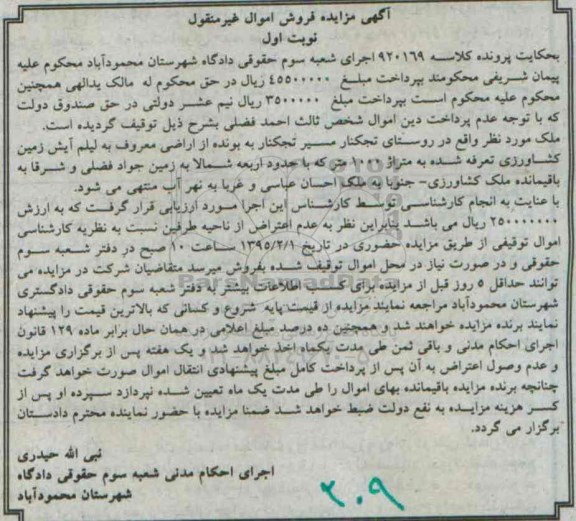 آگهی مزایده فروش اموال غیرمنقول
نوبت اول
بحکایت پرونده کلاسه ۹۲۰۱۶۹ اجرای شعبه سوم حقوقی دادگاه شهرستان محمودآباد محکوم علیه
پیمان شریفی محکومند بپرداخت مبلغ ۴۵۵۰۰۰۰۰ ریال در حق محکوم له مالک یدالهی همچنین
محکوم علیه محکوم است بپرداخت مبلغ ۳۵۰۰۰۰۰ ریال نیم عشر دولتی در حق صندوق دولت
که با توجه عدم پرداخت دین اموال شخص ثالث احمد فضلی بشرح ذیل توقیف گردیده است.
ملک مورد نظر واقع در روستای تجنکنار مسیر تجنکنار به بونده از اراضی معروف به لیلم آیش زمین
کشاورزی تعرفه شده به متراژ متر که با حدود اربعه شمالا به زمین جواد فضلی و شرقا به
باقیمانده ملک کشاورزی- جنوبا به ملک احسان عباسی و غربا به نهر آب منتهی می شود.
با عنایت به انجام کارشناسی توسط کارشناس این اجرا مورد ارزیابی قرار گرفت که به ارزش
۲۵۰۰۰۰۰۰۰ ریال می باشد بنابراین نظر به عدم اعتراض از ناحیه طرفین نسبت به نظریه کارشناسی
اموال توقیفی از طریق مزایده حضوری در تاریخ ۱۳۹۵/۲/۱ ساعت ۱۰ صبح در دفتر شعبه سوم
حقوقی و در صورت نیاز در محل اموال توقیف شده بفروش میرسد متقاضیان شرکت در مزایده می
توانند حداقل ۵ روز قبل از مزایده برای کسب اطلاعات بیشتر به دفتر شعبه سوم حقوقی دادگستری
شهرستان محمودآباد مراجعه نمایند مزایده از قیمت پایه شروع و کسانی که بالاترین قیمت را پیشنهاد
نمایند برنده مزایده خواهند شد و همچنین ده درصد مبلغ اعلامی در همان حال برابر ماده ۱۲۹ قانون
اجرای احکام مدنی و باقی ثمن طی مدت یکماه اخذ خواهد شد و یک هفته پس از برگزاری مزایده
و عدم وصول اعتراض به آن پس از پرداخت کامل مبلغ پیشنهادی انتقال اموال صورت خواهد گرفت
چنانچه برنده مزایده باقیمانده بهای اموال را طی مدت یک ماه تعیین شده نپردازد سپرده او پس از
کسر هزینه مزایده به نفع دولت ضبط خواهد شد ضمنا مزایده با حضور نماینده محترم دادستان
برگزار می گردد.
نبی الله حیدری
اجرای احکام مدنی شعبه سوم حقوقی دادگاه
شهرستان محمودآباد
۲۰۹